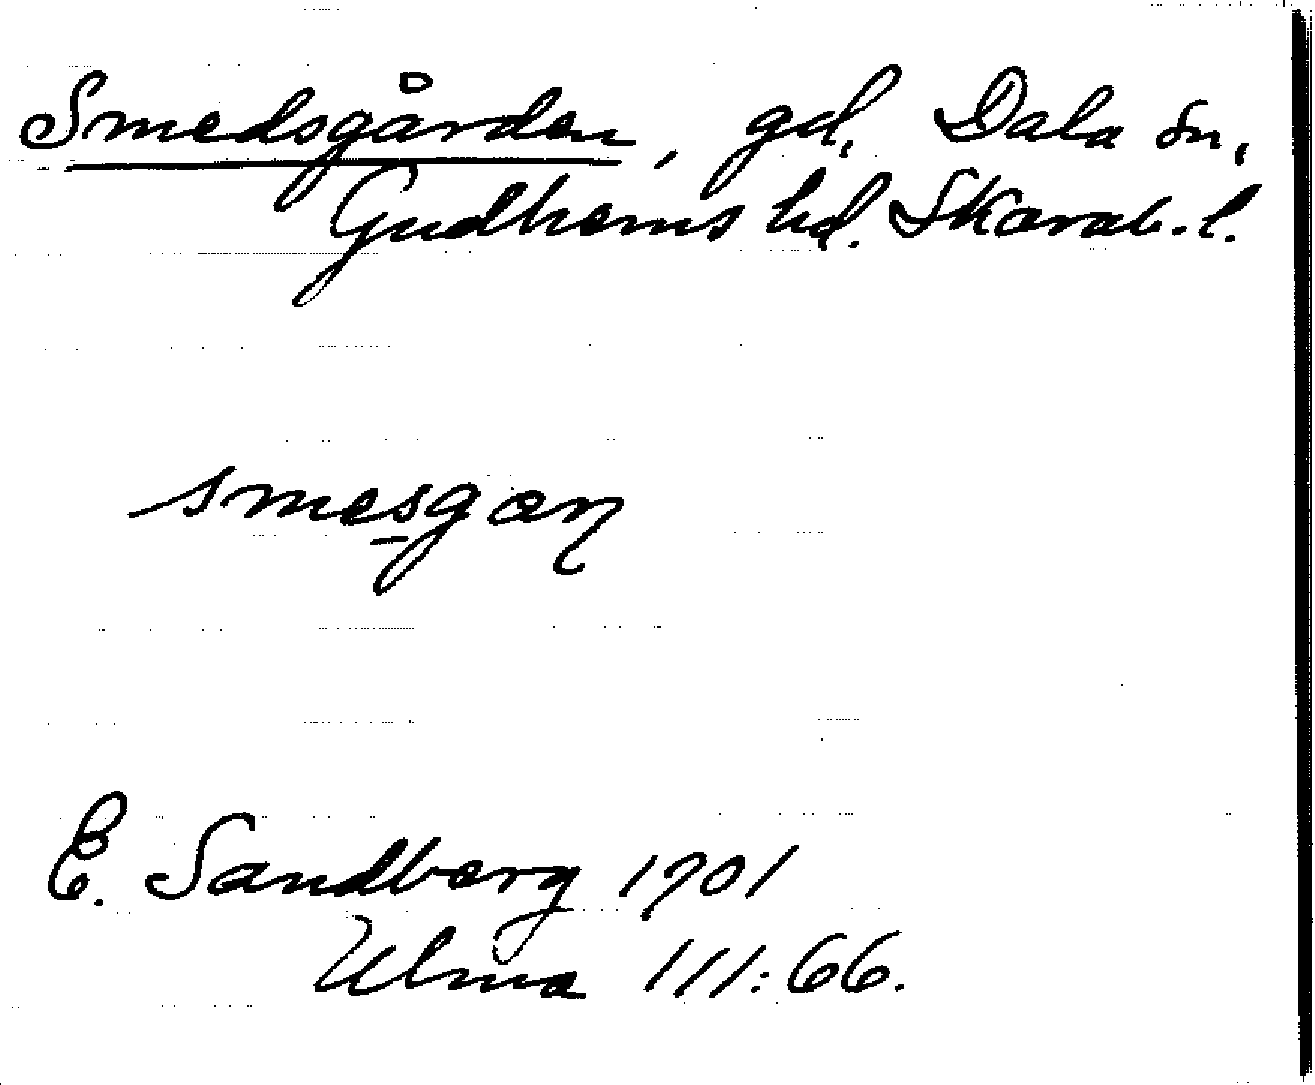 Smedsgården, gd, Dala sn,
Gudhems hd. Skarab. l.
smesgaɳ
E. Sandberg 1901
Ulma 111:66.